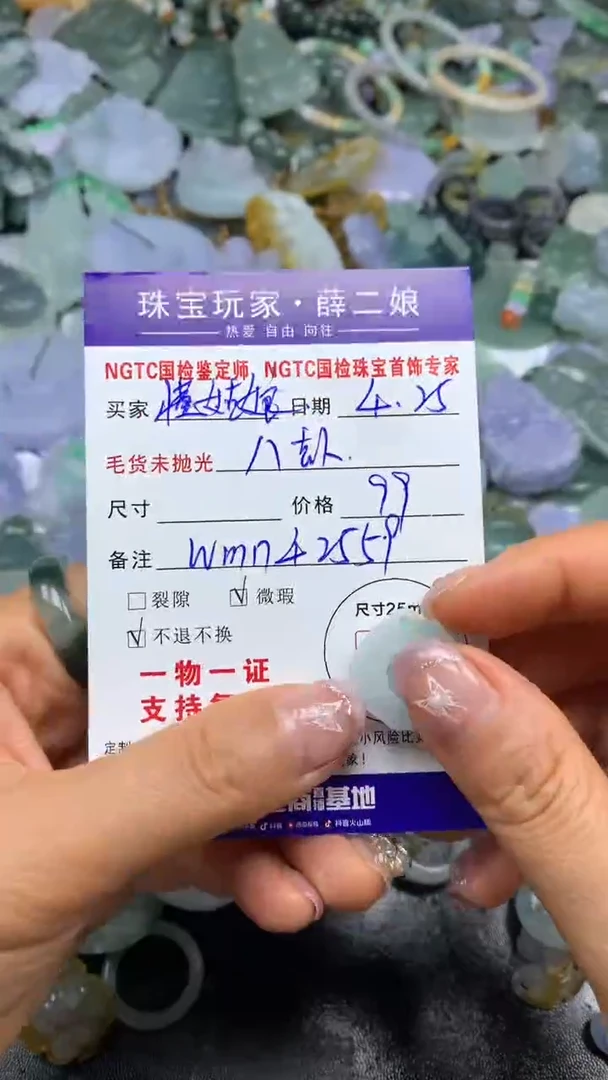 珠宝玩家·薛二娘
热爱 自由 向往
NGTC国检鉴定师 NGTC国检珠宝首饰专家
买家 日期 4.25
毛货未抛光 八卦.
尺寸 价格 99
备注 wmn42559
裂隙 微瑕 尺寸25m
不退不换
一物一证
支持
定制 小风险比
家！
基地
抖音火山版